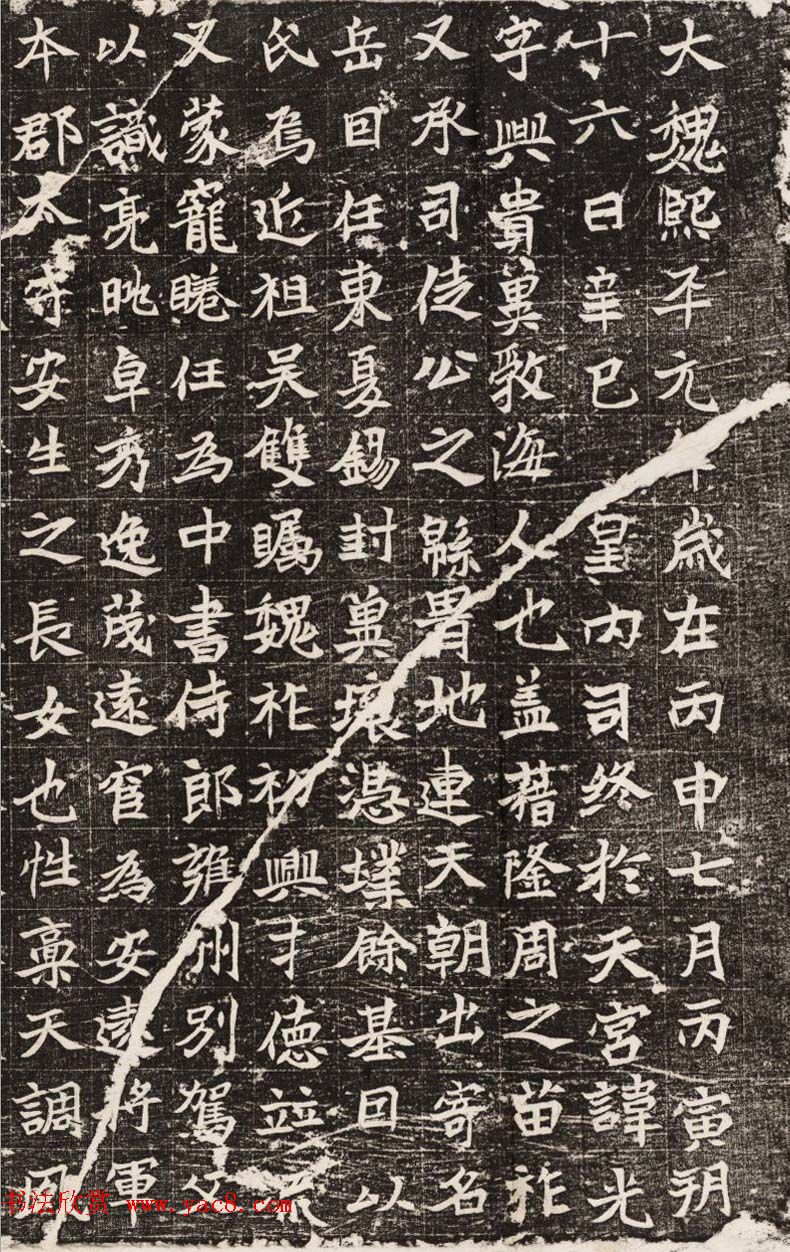 大魏熙平元年歲在丙申七月丙寅朔
十六日辛巳 皇内司终於天宮諱光
字興貴冀勃海人也盖藉隆周之苗祚
又承司徒公之緜胄地連天朝出寄名
岳囙任東夏錫封冀壤憑堞餘基囙以
氏焉近祖吴雙矚魏祚初興才德並
又蒙寵睠任為中書侍郎雍州別駕父
以識亮晀卓秀逸茂遠官為安遠将軍
本郡太守安生之長女也性稟天調風
书法欣赏 www.yac8.com